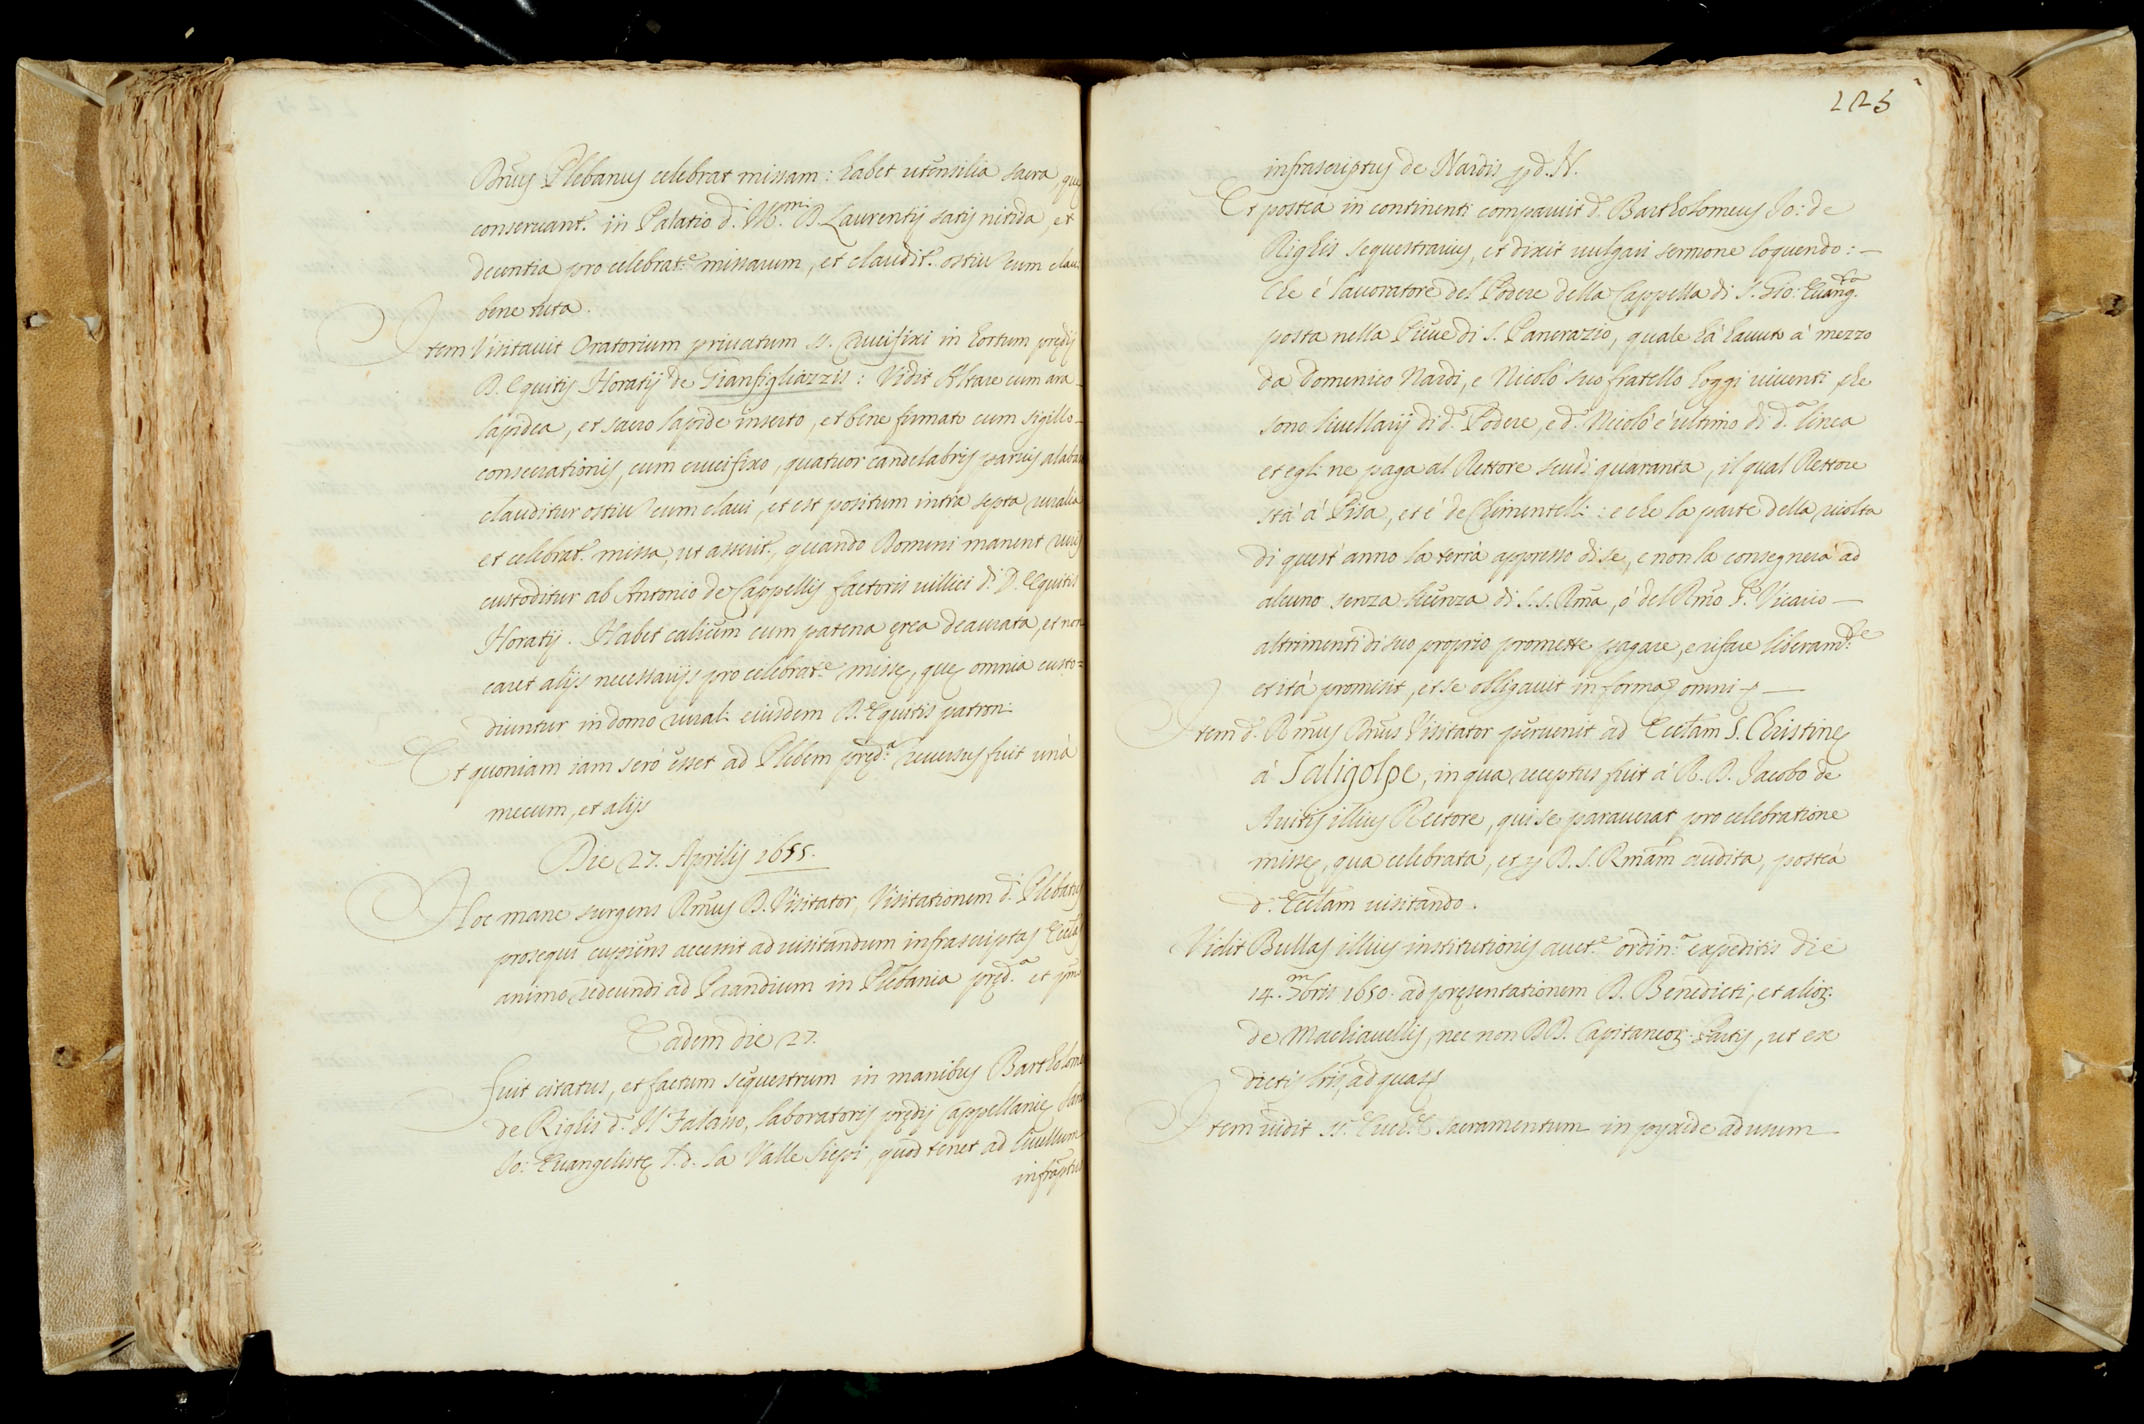 Dnus Plebanus celebrat missam: habet utensilia sacra, que
conservant. in Palatio d. Ill.mi D. Laurentij satis nitida, et
decentia pro celebrat.e missarum, et claudit. ostiu cum clavi
bene tuta.
Item Visitavit Oratorium privatum SS. Crucifixi in hortum prędij
D. Equitis Horatij de Gianfigliazzis: Vidit Altare cum ara
lapidea, et sacro lapide inserto, et bene firmato cum sigillo
consecrationis, cum crucifixo, quatuor candelabris parvis
clauditur ostiu cum clavi, et est positum intra septa ruralia
et celebrat. missa, ut asserit., quando Domini manent ruri
custoditur ab Antonio de Cappellis factoris villici d. D. Equitis
Horatij. Habet calicem cum patena ęrea deaurata, et non
caret alijs necessarijs pro celebrat.e missę, que omnia custo=
diuntur in domo rurali eiusdem D. Equitis patroni
Et quoniam iam seró esset ad Plebem pręd.a reversus fuit unà
mecum, et alijs
Die 27. Aprilis 1655.
Hoc mane surgens Rmus D. Visitator, Visitationem d. Plebatus
prosequi cupiens accessit ad visitandum infrascriptas
animo redeundi ad Prandium in Plebania pręd.a et
Eadem die 27.
Fuit citatus, et factum sequestrum in manibus Bartholomei
de Riglis d. Il Falasso, laboratoris prędij Cappellanię
Jo: Evangelistę l.d. la Valle, quod tenet ad livellum
infrāptus
225
infrascriptus de Nardis
Et posteà in continenti comparuit d. Bartholomeus Jo: de
Riglis sequestrarius, et dixit vulgari sermone loquendo: —
Che é lavoratore del Podere della Cappella di S. Gio: Evang.sta
posta nella Pieve di S. Pancrazio, quale hà havuto à mezzo
da Domenico Nardi, e Nicolò suo fratello hoggi viventi che
sono livellarij di d.o Podere, e d.o Nicolò é ultimo di d.a linea
et egli ne paga al Rettore scudi quaranta, il qual Rettore
stà à Pisa, et é de Chimentelli: e che la parte della ricolta
di quest'anno la terrà appresso di se, e non la consegnerà ad
alcuno senza licenza di S.S. Rma, ó del Rmo Sr. Vicario —
altrimenti di suo proprio promette pagare, e rifare liberam.te
et ità promisit, et se obligavit in forma omni —
Item d. Rmus Dnus Visitator pervenit ad Eccl'am S. Christinę
à Saligolpe, in qua receptus fuit à R. D. Jacobo de
Avitis illius Rectore, qui se paraverat pro celebratione
missę, qua celebrata, et p D. S. Rmam audita, posteà
d. Eccl'am visitando.
Vidit Bullas illius institutionis auct.e ordin.a expeditis die
14. mbris 1650. ad pręsentationem D. Benedicti, et alior:
de Machiavellis, nec non DD. Capitaneor. Partis, ut ex
dictis lris, ad quas
Item vidit SS. Euch.e Sacramentum in pyxide ad usum